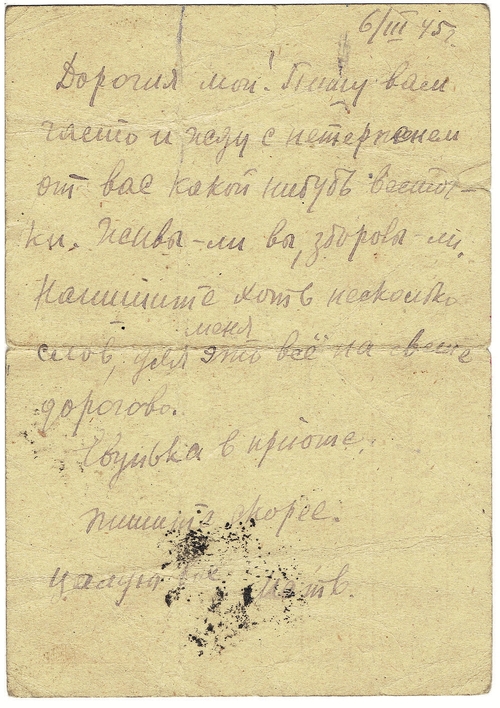 6/III 45 г.
Дорогия мои! Пишу вам
часто и жду с нетерпенем
от вас какой нибудь весточ-
ки. Живы-ли вы, здоровы-ли.
Напишите хоть несколько
меня
слов, для это всё на свете
дорогово.
в приюте.
пишите скорее.
Целую вас мать.